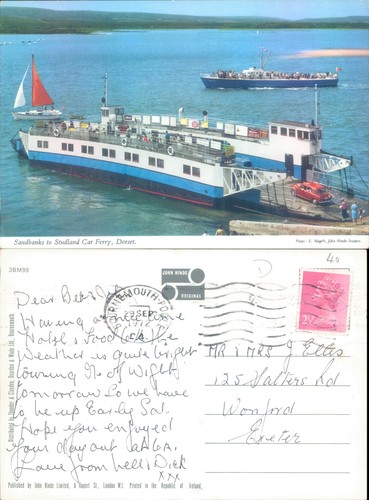 Sandbanks to Studland Car Ferry, Dorset.
Photo: E. Nägele, John Hinde Studios.
3BM99
40
D
JOHN HINDE
ORIGINALS
BOURNEMOUTH-POOLE
SEP
2½
Dear Bet & J
Having a nice time
Hotel & food
Weather is quite bright
touring I. of Wight
tomorrow so we have
to be up Early Sat.
Hope you enjoyed
your day out
Love from Nell & Dick
xxx
MR & MRS J Ellis
125 Salters Rd
Wonford
Exeter
Published by John Hinde Limited, 6 Rupert St., London W.1. Printed in the Republic of Ireland.